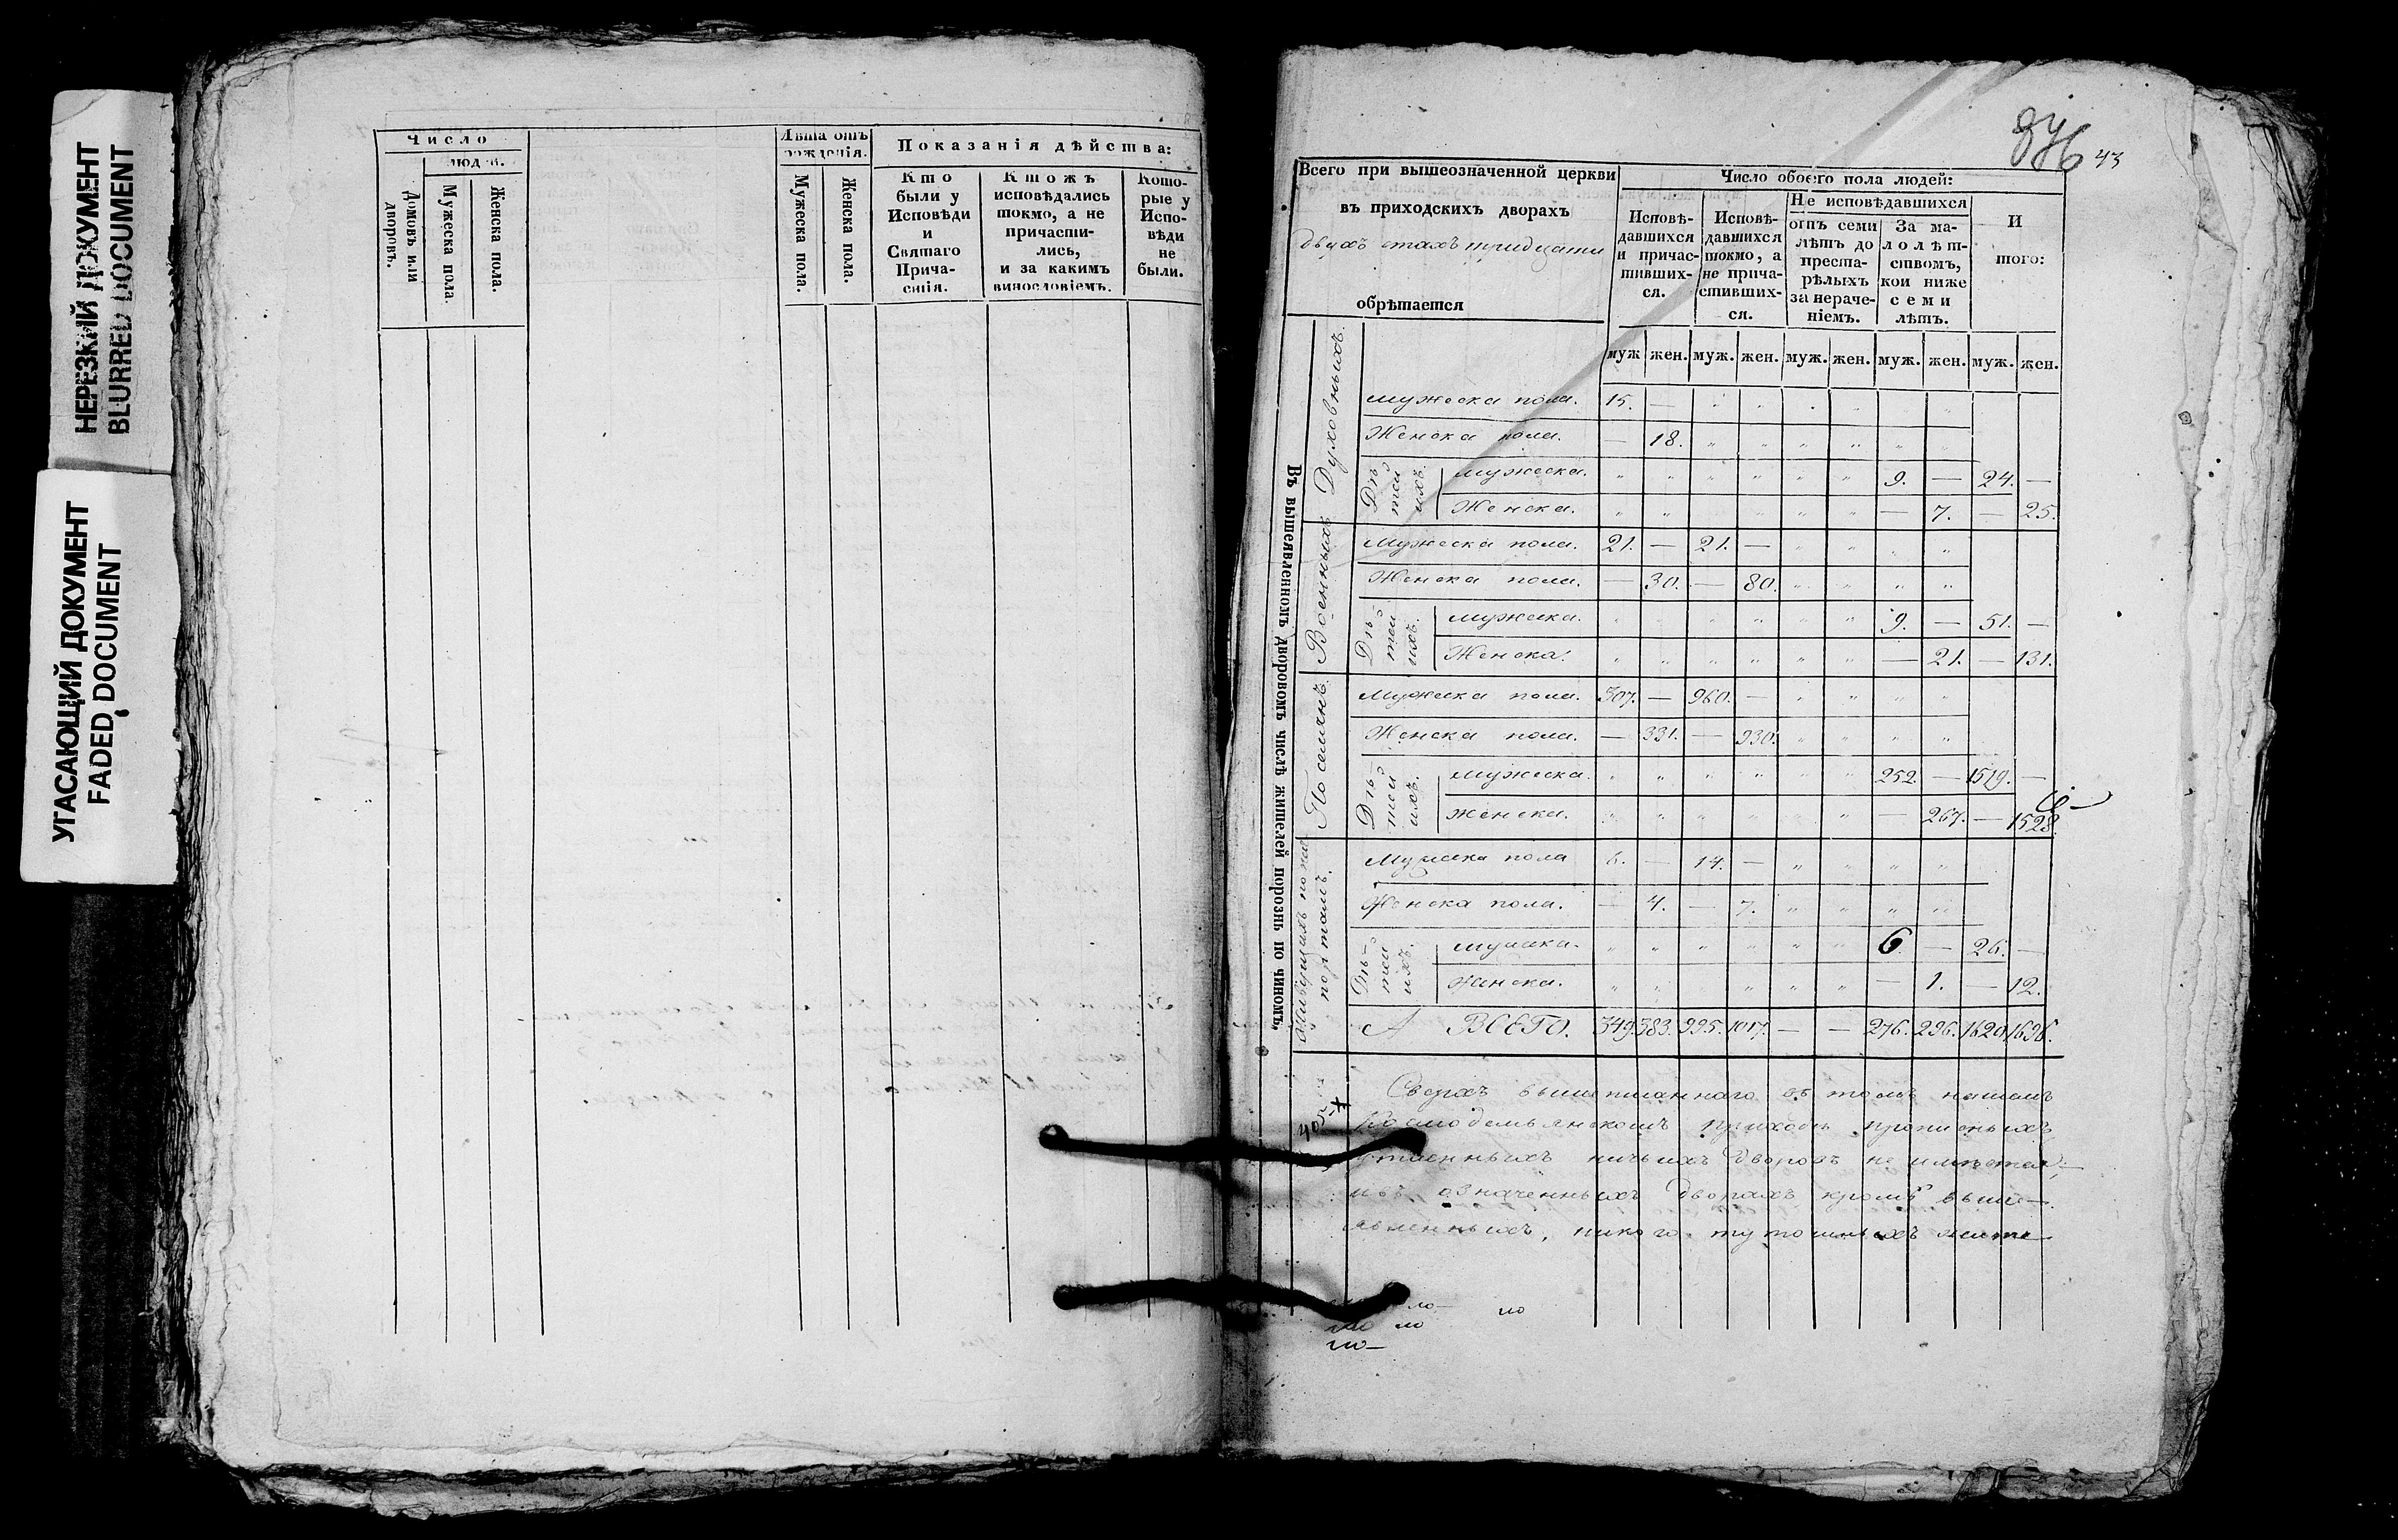 НЕРЕЗКИЙ ДОКУМЕНТ
BLURRED DOCUMENT
УГАСАЮЩИЙ ДОКУМЕНТ
FADED DOCUMENT
Число
люд й.
Домовъ или дворовъ.
Мужеска пола.
Женска пола.
Лѣта отъ рожденія.
Мужеска пола.
Женска пола.
Показанія дѣйства:
Кто были у Исповѣди и Святаго Причастія.
Ктожъ исповѣдались токмо, а не причастились, и за какимъ винословіемъ.
Которые у Исповѣди не были.
43
Всего при вышеозначенной церкви
въ приходскихъ дворахъ
двухъ стахъ тридцати
обрѣтается
Число обоего пола людей:
Исповѣдавшихся и причастившихся.
Исповѣдавшихся токмо, а не причастившихся.
Не исповѣдавшихся
отъ семи лѣтъ до престарѣлыхъ за нераченіемъ.
За малолѣтствомъ, кои ниже семи лѣтъ.
Итого:
муж жен. муж. жен. муж. жен. муж. жен. муж. жен.
Въ вышеявленномъ дворовомъ числѣ жителей порознь по чиномъ,
Духовныхъ
мужеска пола. 15. — " " " " " "
Женска пола. — 18. " " " " " "
Дѣтей ихъ.
мужеска. " " " " " " 9. — 24. —
Женска. " " " " " — 7. — 25.
Военныхъ
Мужеска пола. 21. — 21. — " " " "
Женска пола. — 30. — 80. " " " "
Дѣтей ихъ.
мужеска. " " " " " " 9. — 51. —
Женска. " " " " " " — 21. — 131.
Поселянъ.
Мужеска пола. 307. — 960. — " " " "
Женска пола. — 331. — 930. " " " "
Дѣтей ихъ.
мужеска. " " " " " " 252. — 1519. —
женска. " " " " " " — 267. — 1528.
Живущихъ по пашпортамъ.
Мужеска пола 6. — 14. — " " " "
Женска пола. — 4. — 7. " " " "
Дѣтей ихъ.
мужска. " " " " " " 6. — 26. —
Женска. " " " " " " — 1. — 12.
А ВСЕГО. 349. 383. 995. 1017. — — 276. 296. 1620. 1696.
Сверхъ вышеписаннаго въ томъ нашемъ
Космодемьянскомъ приходѣ прописныхъ
утаенныхъ ничьихъ дворовъ не имѣется;
и въ означенныхъ дворахъ кромѣ выше-
явленныхъ, никого тутошныхъ жите-